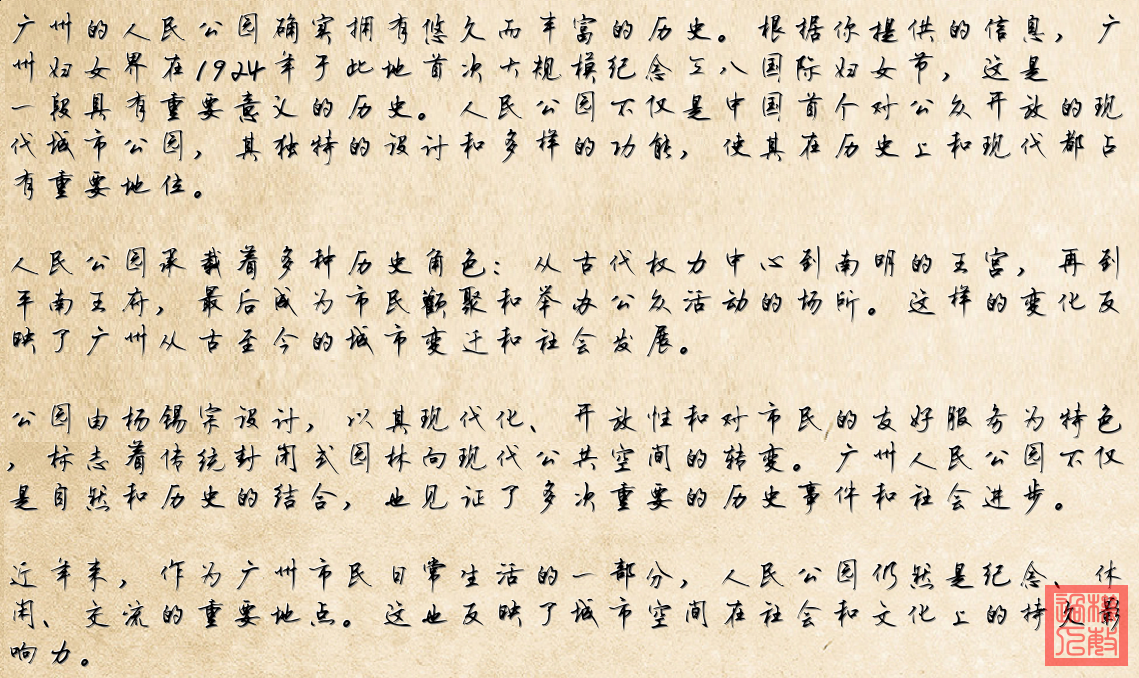 广州的人民公园确实拥有悠久而丰富的历史。根据你提供的信息，广
州妇女界在1924年于此地首次大规模纪念三八国际妇女节，这是
一段具有重要意义的历史。人民公园不仅是中国首个对公众开放的现
代城市公园，其独特的设计和多样的功能，使其在历史上和现代都占
有重要地位。
人民公园承载着多种历史角色：从古代权力中心到南明的王宫，再到
平南王府，最后成为市民颧聚和举办公众活动的场所。这样的变化反
映了广州从古至今的城市变迁和社会发展。
公园由杨锡宗设计，以其现代化、开放性和对市民的友好服务为特色
，标志着传统封闭式园林向现代公共空间的转变。广州人民公园不仅
是自然和历史的结合，也见证了多次重要的历史事件和社会进步。
近年来，作为广州市民日常生活的一部分，人民公园仍然是纪念、休
闲、交流的重要地点。这也反映了城市空间在社会和文化上的持久影
响力。